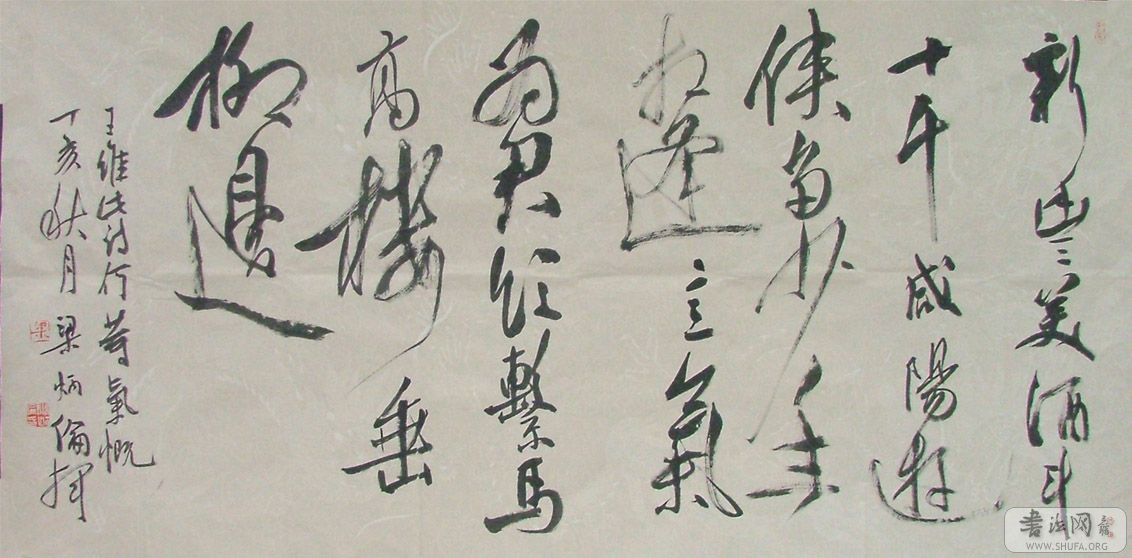 新豐美酒斗
十千咸陽遊
俠多少年
相逢意氣
為君飲繫馬
高樓垂
柳邊
王維此詩何等氣慨
丁亥秋月 梁炳倫揮
書法网
WWW.SHUFA.ORG